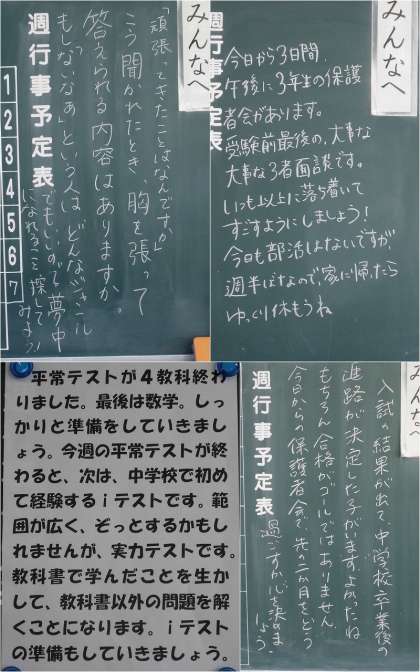 みんなへ
週行事予定表
1
2
3
4
5
6
7
「頑張ってきたことはなんですか」
こう聞かれたとき、胸を張って
答えられる内容はありますか。
もしないなぁ」という人は、どんなジャンル
でもいいので夢中
になれること探して
みよう!
みんなへ
表
今日から3日間、
午後に3年生の保護
者会があります。
受験前最後の、大事な
大事な3者面談です。
いつも以上に落ち着いて
すごすようにしましょう!
今日も部活はないですが、
週半ばなので、家に帰ったら
ゆっくり休もうね
平常テストが4教科終わ
りました。最後は数学。しっ
かりと準備をしていきまし
ょう。今週の平常テストが終
わると、次は、中学校で初め
て経験するiテストです。範
囲が広く、ぞっとするかもし
れませんが、実力テストです。
教科書で学んだことを生か
して、教科書以外の問題を解
くことになります。iテスト
の準備もしていきましょう。
みんなへ
週行事予定表
入試の結果が出て、中学校卒業後の
進路が決定した子がいますよかったね
もちろん合格がゴールではありません
今日からの保護者会で、先の二か月をどう
過ごすか心を決めま
しょう